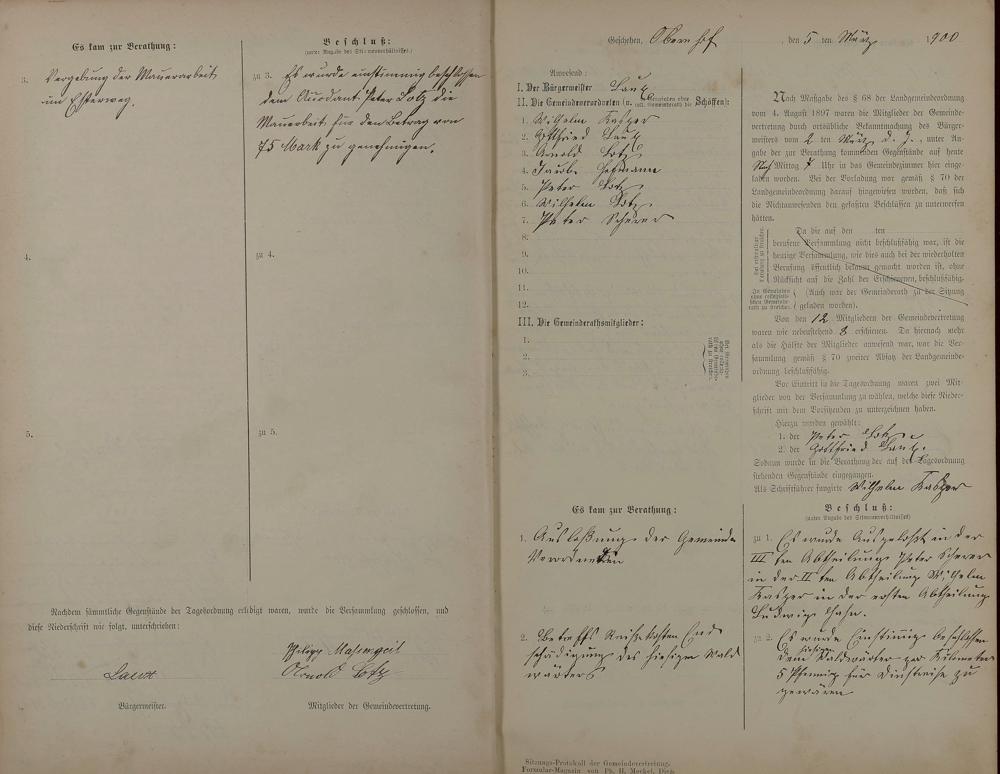 Es kam zur Berathung:
Beschluß:
(unter Angabe des Stimmenverhältnisses.)
3. Vergebung der Mauerarbeit
im Elsterweg.
zu 3. Es wurde einstimmig beschlossen
dem Peter Lotz die
Mauerarbeit für den Betrag von
75 Mark zu genehmigen.
4.
zu 4.
5.
zu 5.
Nachdem sämmtliche Gegenstände der Tagesordnung erledigt waren, wurde die Versammlung geschlossen, und
diese Niederschrift wie folgt, unterschrieben:
Philipp
Laux
Arnold Lotz
Bürgermeister.
Mitglieder der Gemeindevertretung.
Geschehen, Obernhof, den 5 ten März 1900
Anwesend:
I. Der Bürgermeister Laux
II. Die Gemeindeverordneten (u. Schöffen):
1. Wilhelm Kasper
2. Gottfried Laux
3. Arnold Lotz
4. Jacob Hofmann
5. Peter Lotz
6. Wilhelm Lotz
7. Peter Scherer
8.
9.
10.
11.
12.
III. Die Gemeinderathsmitglieder:
1.
2.
3.
Nach Maßgabe des § 68 der Landgemeindeordnung
vom 4. August 1897 waren die Mitglieder der Gemeinde-
vertretung durch ortsübliche Bekanntmachung des Bürger-
meisters vom 2 ten März d. J., unter An-
gabe der zur Berathung kommenden Gegenstände auf heute
Nach Mittag 7 Uhr in das Gemeindezimmer hier einge-
laden worden. Bei der Vorladung war gemäß § 70 der
Landgemeindeordnung darauf hingewiesen worden, daß sich
die Nichtanwesenden den gefaßten Beschlüssen zu unterwerfen
hätten.
Da die auf den ten
berufene Versammlung nicht beschlußfähig war, ist die
heutige Versammlung, wie dies auch bei der wiederholten
Berufung öffentlich bekannt gemacht worden ist, ohne
Rücksicht auf die Zahl der Erschienenen, beschlußfähig.
(Auch war der Gemeinderath zu der Sitzung
geladen worden).
Von den 12 Mitgliedern der Gemeindevertretung
waren wie nebenstehend 8 erschienen. Da hiernach mehr
als die Hälfte der Mitglieder anwesend war, war die Ver-
sammlung gemäß § 70 zweiter Absatz der Landgemeinde-
ordnung beschlußfähig.
Vor Eintritt in die Tagesordnung waren zwei Mit-
glieder von der Versammlung zu wählen, welche diese Nieder-
schrift mit dem Vorsitzenden zu unterzeichnen haben.
Hierzu wurden gewählt:
1. der Peter Lotz
2. der Gottfried Laux.
Sodann wurde in die Berathung der auf der Tagesordnung
stehenden Gegenstände eingegangen.
Als Schriftführer fungirte Wilhelm Kasper
Es kam zur Berathung:
Beschluß:
(unter Angabe des Stimmenverhältnisses)
1. Auslosung der Gemeinde
Verordneten
zu 1. Es wurde Ausgelost in der
III ten Abtheilung Peter Scherer
in der II ten Abtheilung Wilhelm
Kasper in der ersten Abtheilung
Ludwig Hahn.
2. Betreffs Reisekosten Ent
schädigung des hiesigen Wald
wärters
zu 2. Es wurde Einstimmig beschlossen
dem hiesigen Waldwärter per Kilometer
5 Pfennig für Dienstreise zu
gewähren
Sitzungs-Protokoll der Gemeindevertretung.
Formular-Magazin von Ph. H. Merkel, Diez.